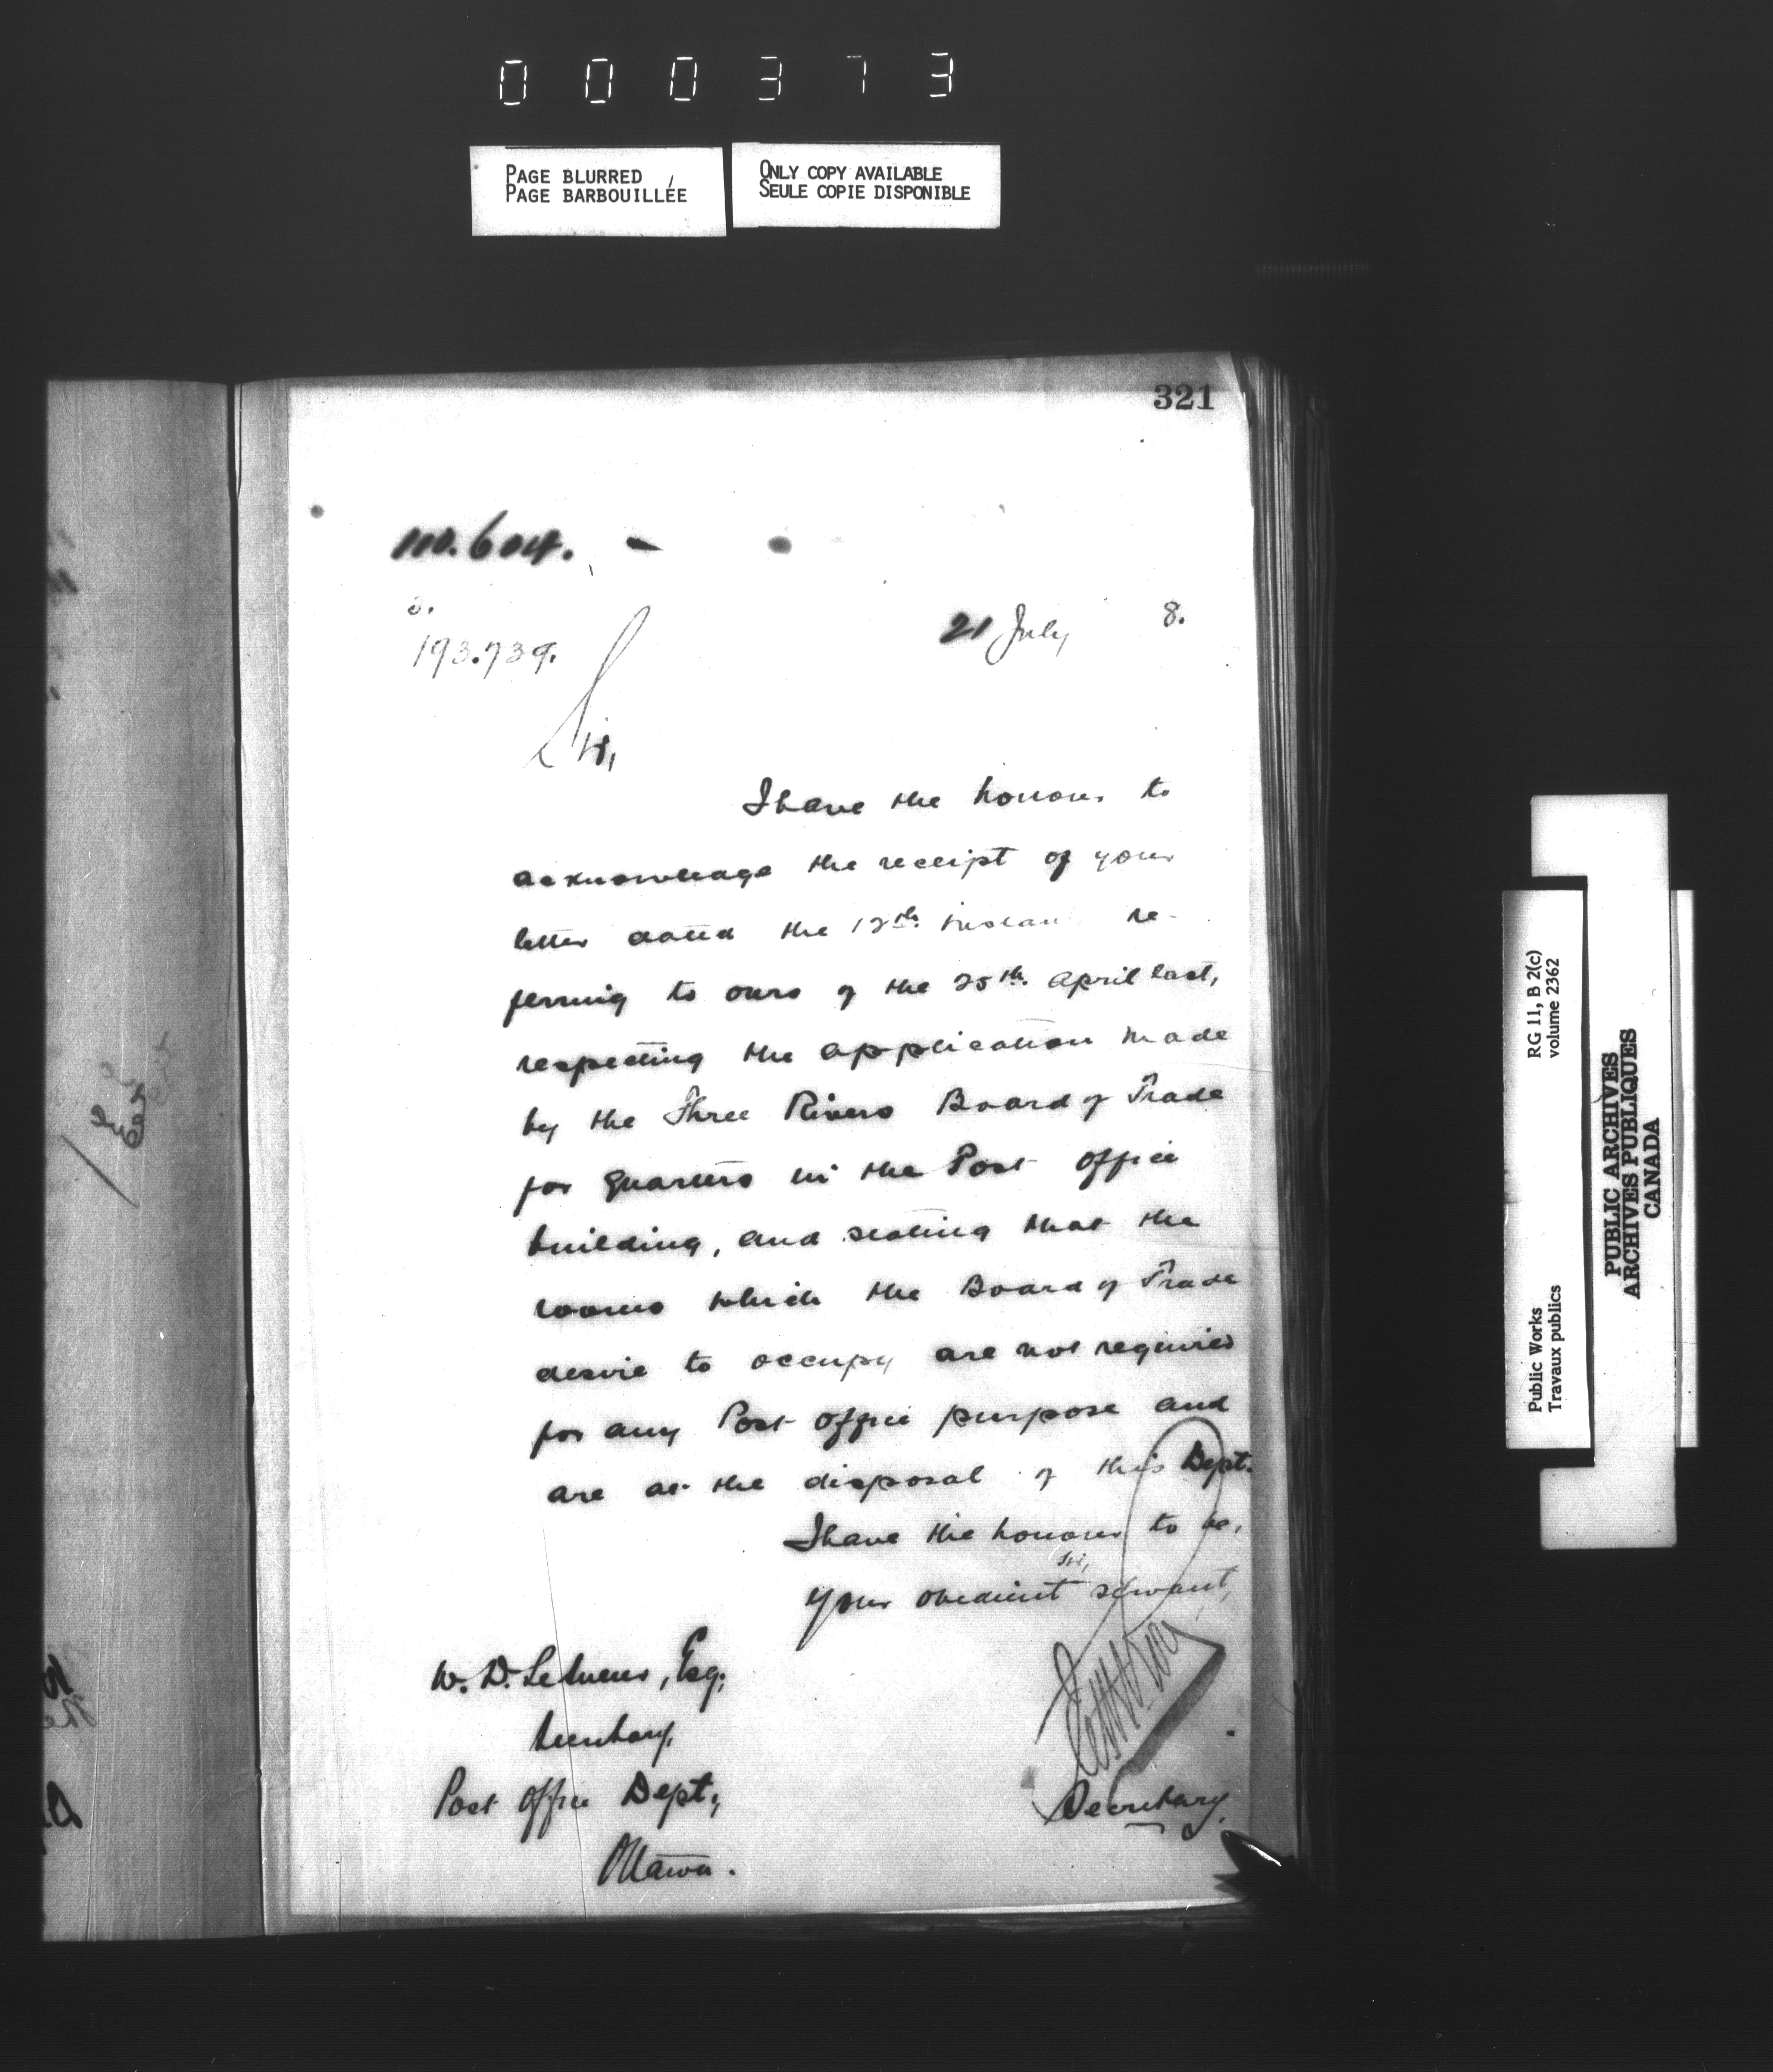 000373
PAGE BLURRED
PAGE BARBOUILLÉE
ONLY COPY AVAILABLE
SEULE COPIE DISPONIBLE
321
No. 604.
193.739.
21 July 8.
Sir,
I have the honour to
acknowledge the receipt of your
letter dated the 12th. instant re-
ferring to ours of the 25th. April last,
respecting the application made
by the Three Rivers Board of Trade
for quarters in the Post Office
building, and stating that the
rooms which the Board of Trade
desire to occupy are not required
for any Post Office purpose and
are at the disposal of this Dept.
I have the honour to be,
Sir,
Your obedient servant,
W. D. LeSueur, Esq;
Secretary,
Post Office Dept.,
Ottawa.
Secretary.
RG 11, B 2(c)
volume 2362
Public Works
Travaux publics
PUBLIC ARCHIVES
ARCHIVES PUBLIQUES
CANADA